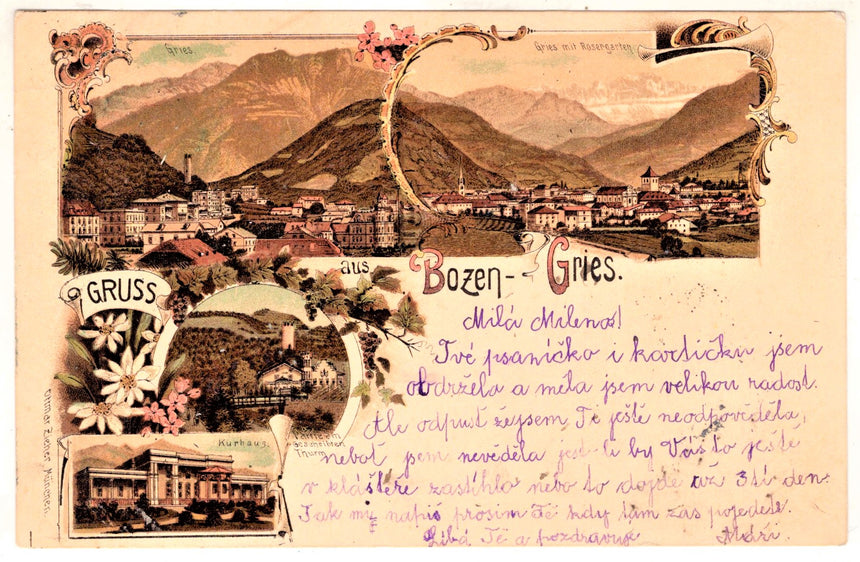 Gries
Gries mit Rosengarten
GRUSS
aus
Bozen-Gries.
Kurhaus.
Thurm
Ottmar Zieher, München.
Milá Mileno!
Tvé psaníčko i kartičku jsem
obdržela a měla jsem velikou radost.
Ale odpusť žejsem Ti ještě neodpověděla,
neboť jsem nevěděla jest li by Vás to ještě
v klášteře zastihlo nebo to dojde až 3tí den.
Tak mi napiš prosím Tě kdy tam zas pojedete.
Líbá Tě a pozdravuje Máři.